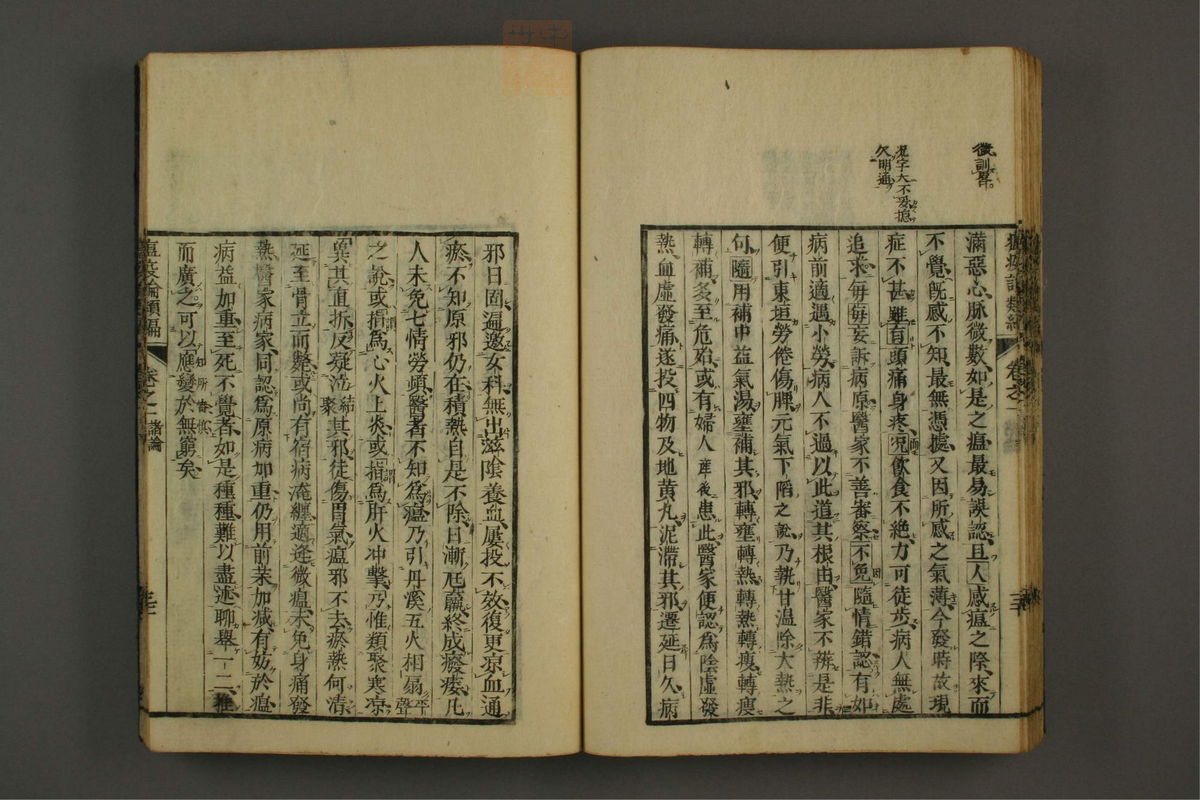 微訓昏
况字大不妥總
欠明通
滿惡心脉微數如是之瘟最易誤認且人感瘟之際來而
不覺旣感不知最無憑據又因所感之氣薄今發時故現
症不甚雖有頭痛身疼况飲食不絶力可徒步病人無處
追求每每妄訴病原醫家不善審察不免隨情錯認有如
病前適遇小勞病人不過以此道其根由醫家不辨是非
便引東垣勞倦傷脾元氣下陷之說乃執甘温除大熱之
句隨用補中益氣湯壅補其邪轉壅轉熱轉熱轉瘦轉瘦
轉補多至危殆或有婦人産後患此醫家便認爲陰虛發
熱血虛發痛遂投四物及地黄丸泥滯其邪遷延日久病
卷之二
邪日固遍邀女科無出滋陰養血屢投不效復更凉血通
瘀不知原邪仍在積熱自是不除日漸尫羸終成癈痿凡
人未免七情勞頓醫者不知爲瘟乃引丹溪五火相扇平聲
之說或指爲心火上炎或指爲肝火冲擊乃惟類聚寒凉
冀其直折反疑泣結聚其邪徒傷胃氣瘟邪不去瘀熱何清
延至骨立而斃或尚有宿病淹纏適逢微瘟未免身痛發
熱醫家病家同認爲原病加重仍用前藥加減有妨於瘟
病益加重至死不覺者如是種種難以盡述聊舉一二推
而廣之可以應變於無窮矣
瘟疫論類編
卷之二 諸論